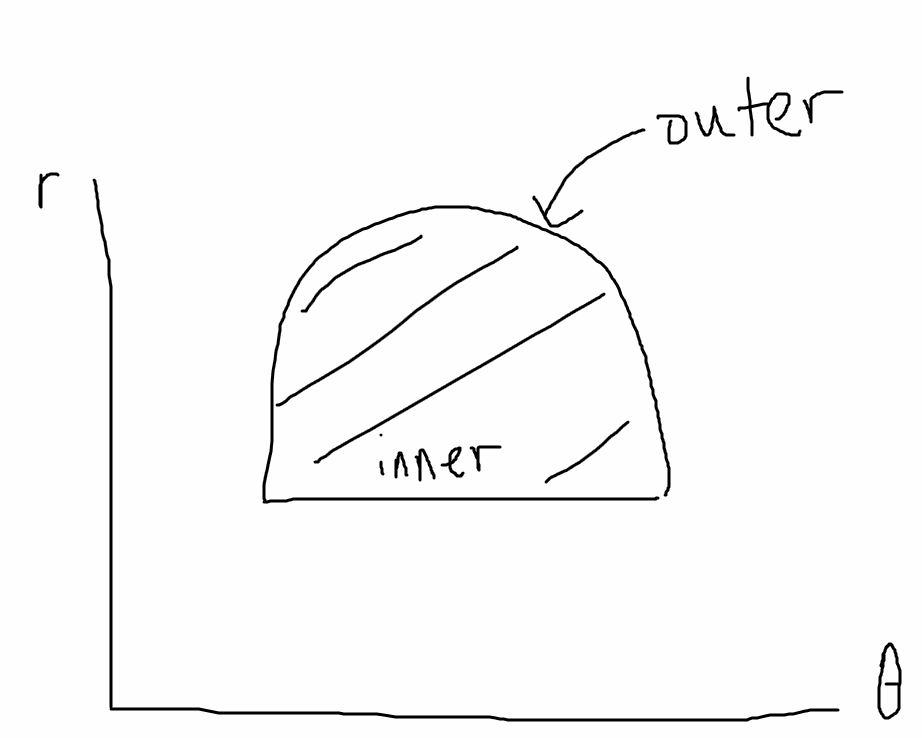 outer
r
inner
θ